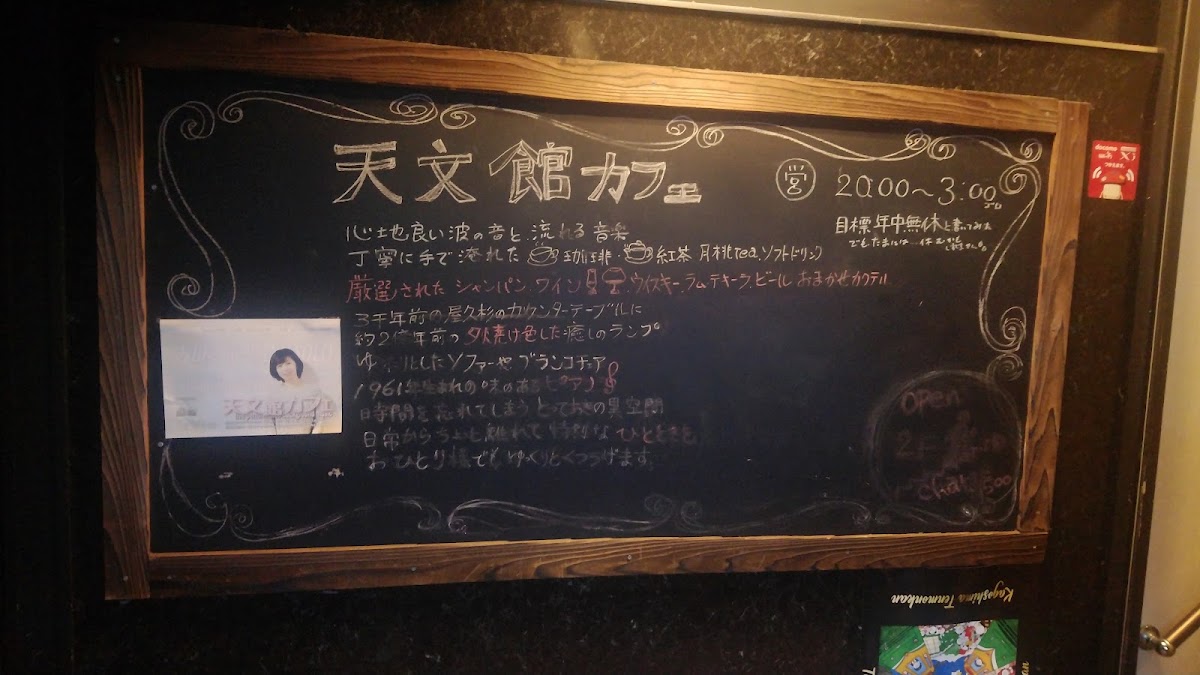 天文館カフェ
営 20:00～3:00
ごろ
目標 年中無休と書いてみた
でもたまには…休むかもしれません。
心地良い波の音と、流れる音楽
丁寧に手で淹れた 珈琲・紅茶 月桃tea、ソフトドリンク
厳選された シャンパン、ワイン、ウイスキー、ラム、テキーラ、ビール おまかせカクテル
3千年前の屋久杉のカウンターテーブルに
約2億年前の夕焼け色した癒しのランプ
ゆったりしたソファーやブランコチェア
1961年生まれの味のあるピアノ
時間を忘れてしまう とっておきの異空間
日常からちょっと離れて 特別な ひとときを
おひとり様でもゆっくりとくつろげます。
天文館カフェ
open
2F
charge 500
docomo
Xi
Kagoshima Tenmonkan